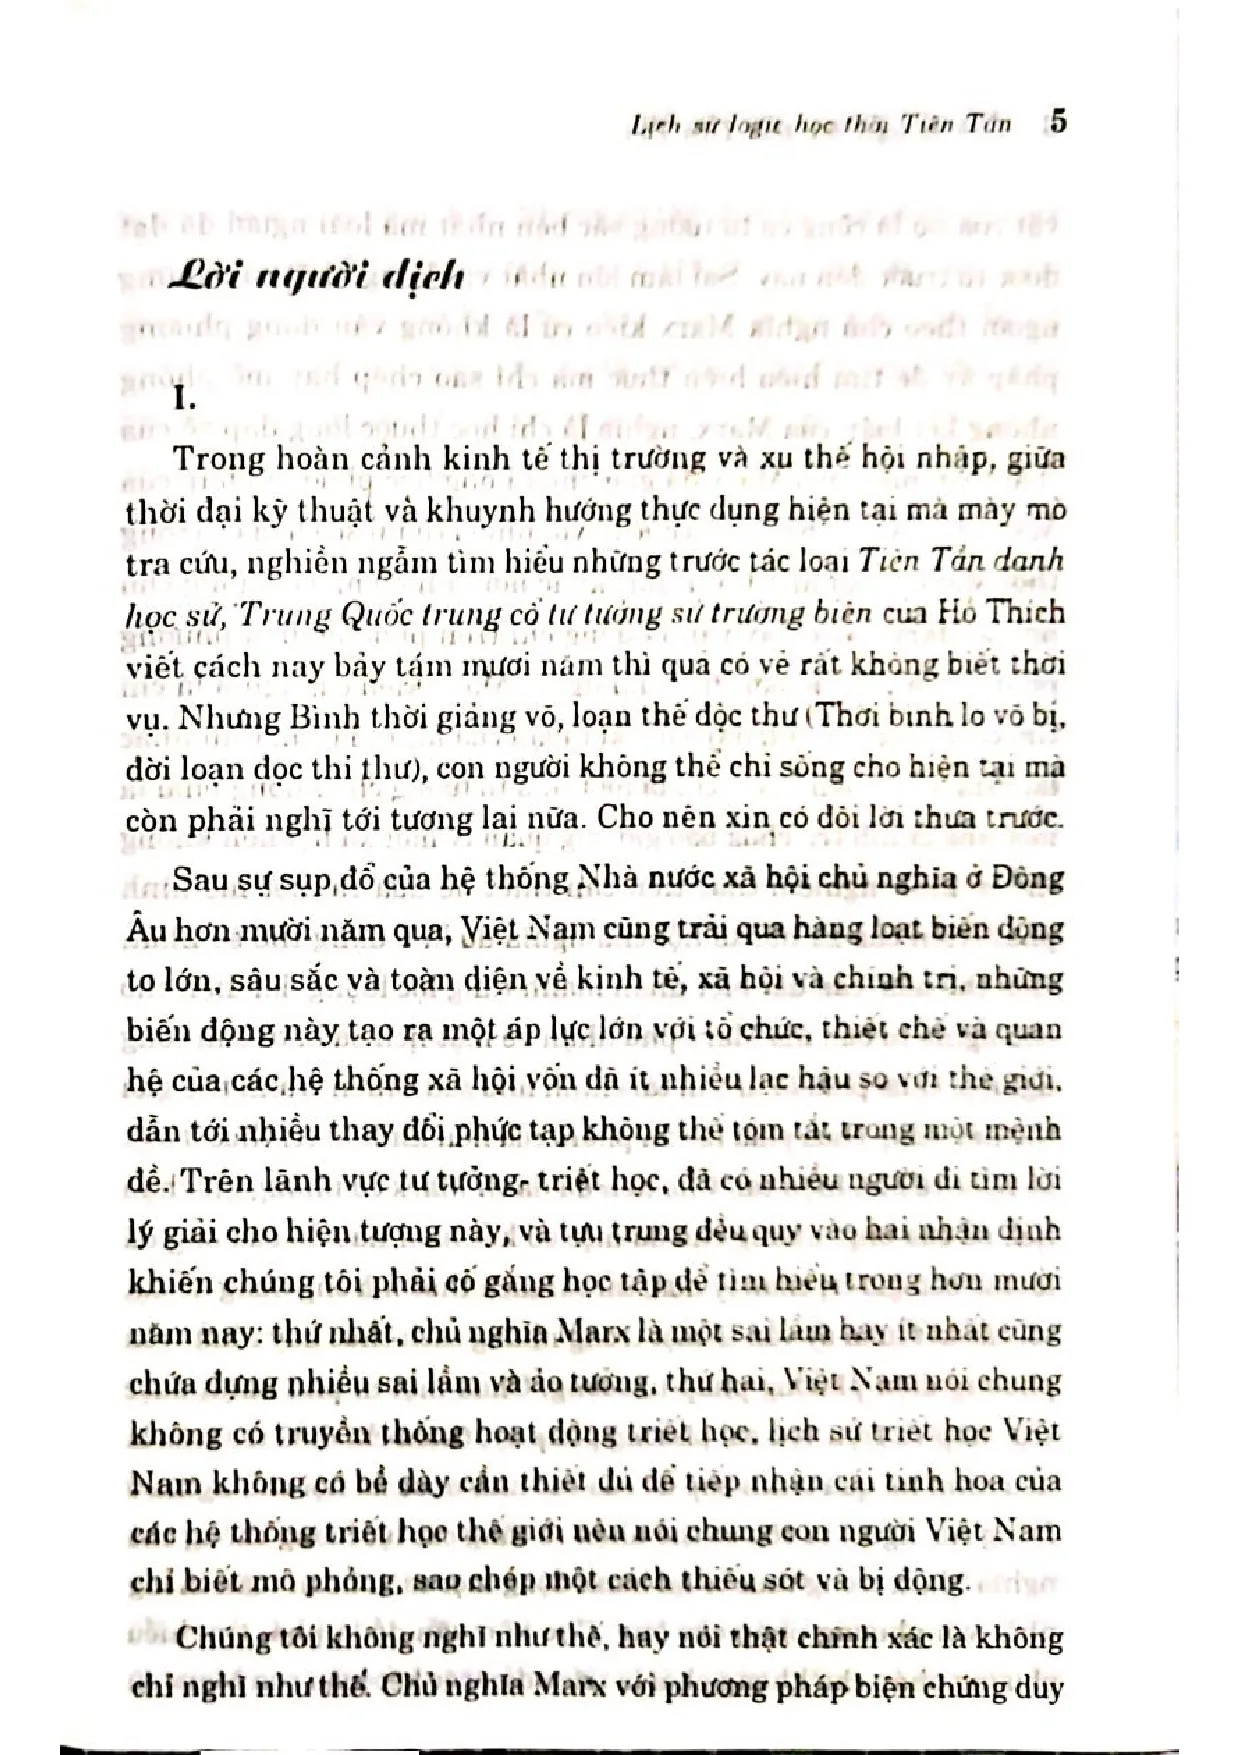 Lịch sử logic học thời Tiên Tần 5
Lời người dịch
I.
Trong hoàn cảnh kinh tế thị trường và xu thế hội nhập, giữa
thời đại kỹ thuật và khuynh hướng thực dụng hiện tại mà mày mò
tra cứu, nghiền ngẫm tìm hiểu những trước tác loại Tiên Tần danh
học sử, Trung Quốc trung cổ tư tưởng sử trường biên của Hồ Thích
viết cách nay bảy tám mươi năm thì quả có vẻ rất không biết thời
vụ. Nhưng Bình thời giảng võ, loạn thế độc thư (Thời bình lo võ bị,
đời loạn đọc thi thư), con người không thể chỉ sống cho hiện tại mà
còn phải nghĩ tới tương lai nữa. Cho nên xin có đôi lời thưa trước.
Sau sự sụp đổ của hệ thống Nhà nước xã hội chủ nghĩa ở Đông
Âu hơn mười năm qua, Việt Nam cũng trải qua hàng loạt biến động
to lớn, sâu sắc và toàn diện về kinh tế, xã hội và chính trị, những
biến động này tạo ra một áp lực lớn với tổ chức, thiết chế và quan
hệ của các hệ thống xã hội vốn đã ít nhiều lạc hậu so với thế giới,
dẫn tới nhiều thay đổi phức tạp không thể tóm tắt trong một mệnh
đề. Trên lãnh vực tư tưởng- triết học, đã có nhiều người đi tìm lời
lý giải cho hiện tượng này, và tựu trung đều quy vào hai nhận định
khiến chúng tôi phải cố gắng học tập để tìm hiểu trong hơn mười
năm nay: thứ nhất, chủ nghĩa Marx là một sai lầm hay ít nhất cũng
chứa đựng nhiều sai lầm và ảo tưởng, thứ hai, Việt Nam nói chung
không có truyền thống hoạt động triết học, lịch sử triết học Việt
Nam không có bề dày cần thiết đủ để tiếp nhận cái tinh hoa của
các hệ thống triết học thế giới nên nói chung con người Việt Nam
chỉ biết mô phỏng, sao chép một cách thiếu sót và bị động.
Chúng tôi không nghĩ như thế, hay nói thật chính xác là không
chỉ nghĩ như thế. Chủ nghĩa Marx với phương pháp biện chứng duy